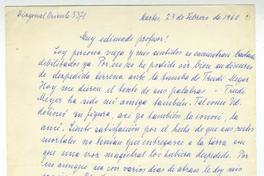 Diagonal Oriente 3371
Martes, 23 de Febrero de 1960
Muy estimado profesor:
Soy persona vieja y mis sentidos se encuentran bastante
debilitados ya. Por eso no he podido oír bien su discurso
de despedida terrena ante la tumba de Trudi Meyer
Hoy me dicen el texto de sus palabras - Trudi
Meyer ha sido mi amiga también. Tal como Ud.
delineó su figura, así yo también la conocí, la
amé. Siento satisfacción por el hecho de que sus restos
mortales no tenían que entregarse a la tierra sin
que una voz magistral los hubiera despedido. Por
eso aunque con varios días de atraso le doy mis